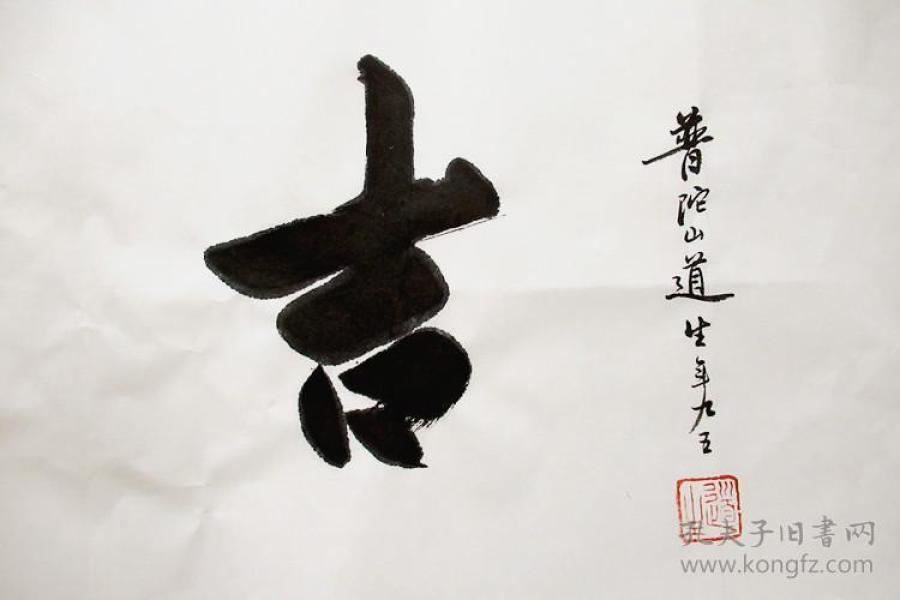 吉
普陀山道生年九五
孔夫子旧書网
www.kongfz.com